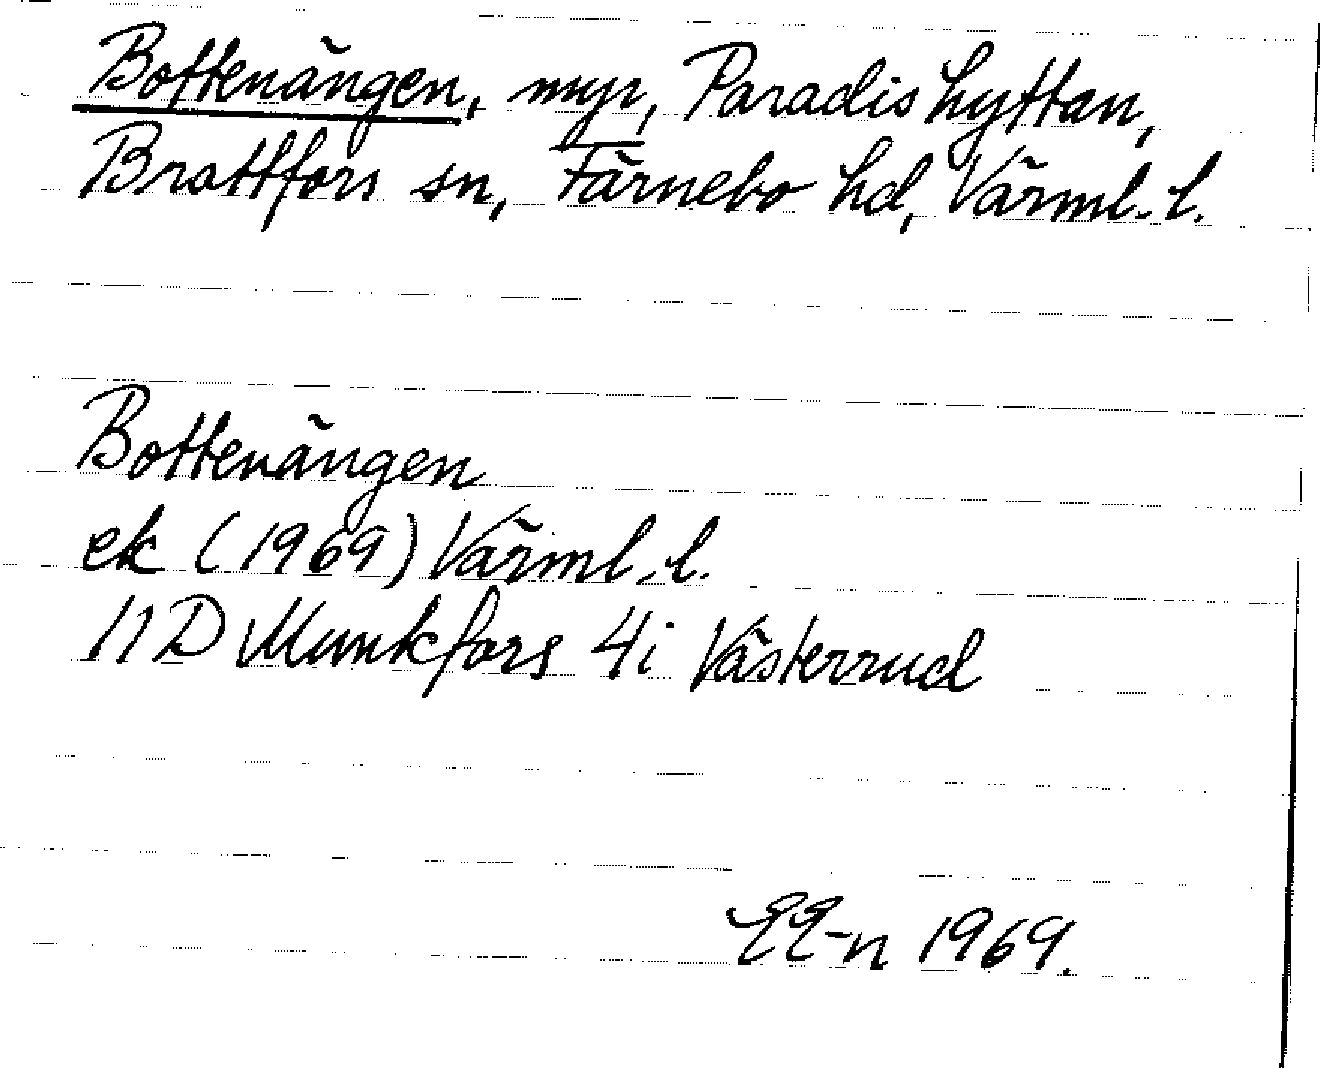 Bottenängen, myr, Paradishyttan,
Brattfors sn, Färnebo hd, Värml. l.
Bottenängen
ek (1969) Värml. l.
11D Munkfors 4i Västerrud
EE-n 1969.